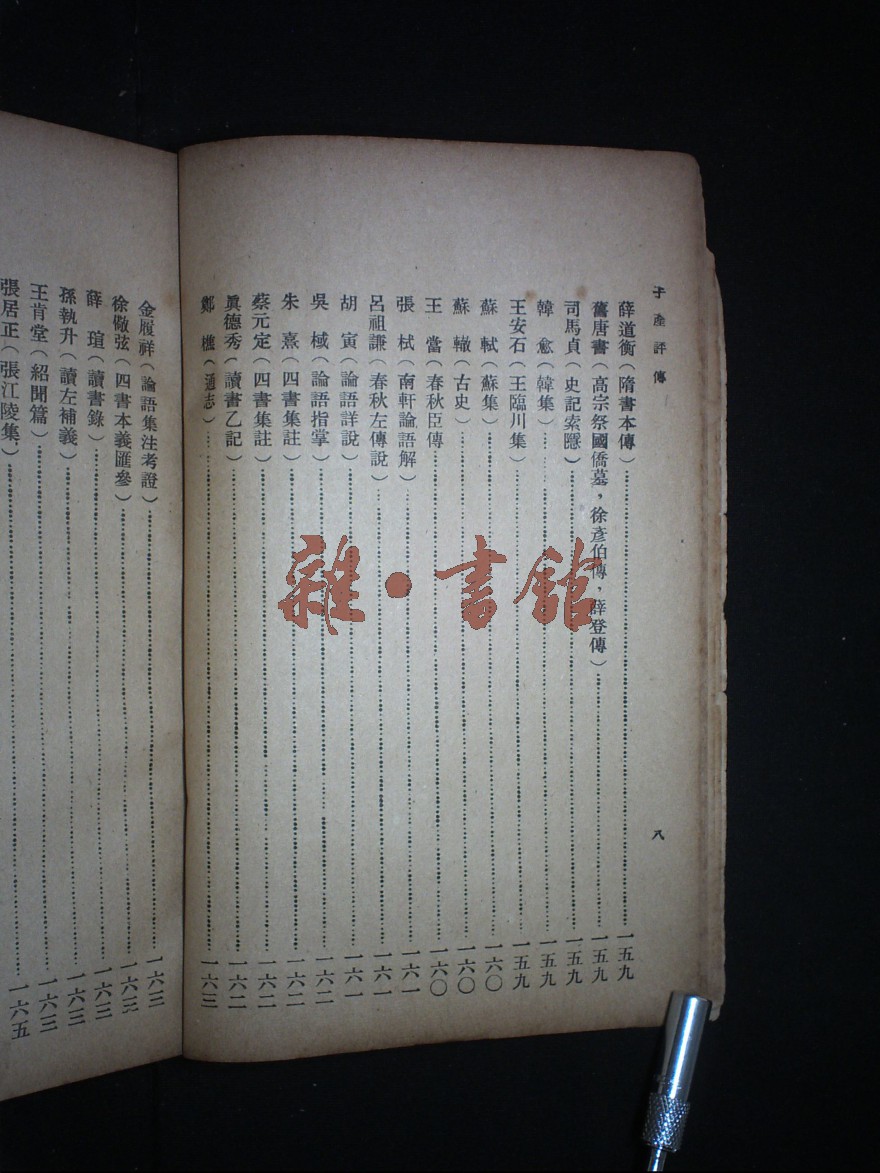 子產評傳
八
薛道衡（隋書本傳）……一五九
舊唐書（高宗祭國僑墓，徐彥伯傳，薛登傳）……一五九
司馬貞（史記索隱）……一五九
韓愈（韓集）……一五九
王安石（王臨川集）……一五九
蘇軾（蘇集）……一六〇
蘇轍（古史）……一六〇
王當（春秋臣傳）……一六〇
張栻（南軒論語解）……一六一
呂祖謙（春秋左傳說）……一六一
胡寅（論語詳說）……一六一
吳棫（論語指掌）……一六二
朱熹（四書集註）……一六二
蔡元定（四書集註）……一六二
眞德秀（讀書乙記）……一六二
鄭樵（通志）……一六三
金履祥（論語集注考證）……一六三
徐儆弦（四書本義匯參）……一六三
薛瑄（讀書錄）……一六三
孫執升（讀左補義）……一六三
王肯堂（紹聞篇）……一六三
張居正（張江陵集）……一六五
雜·書館